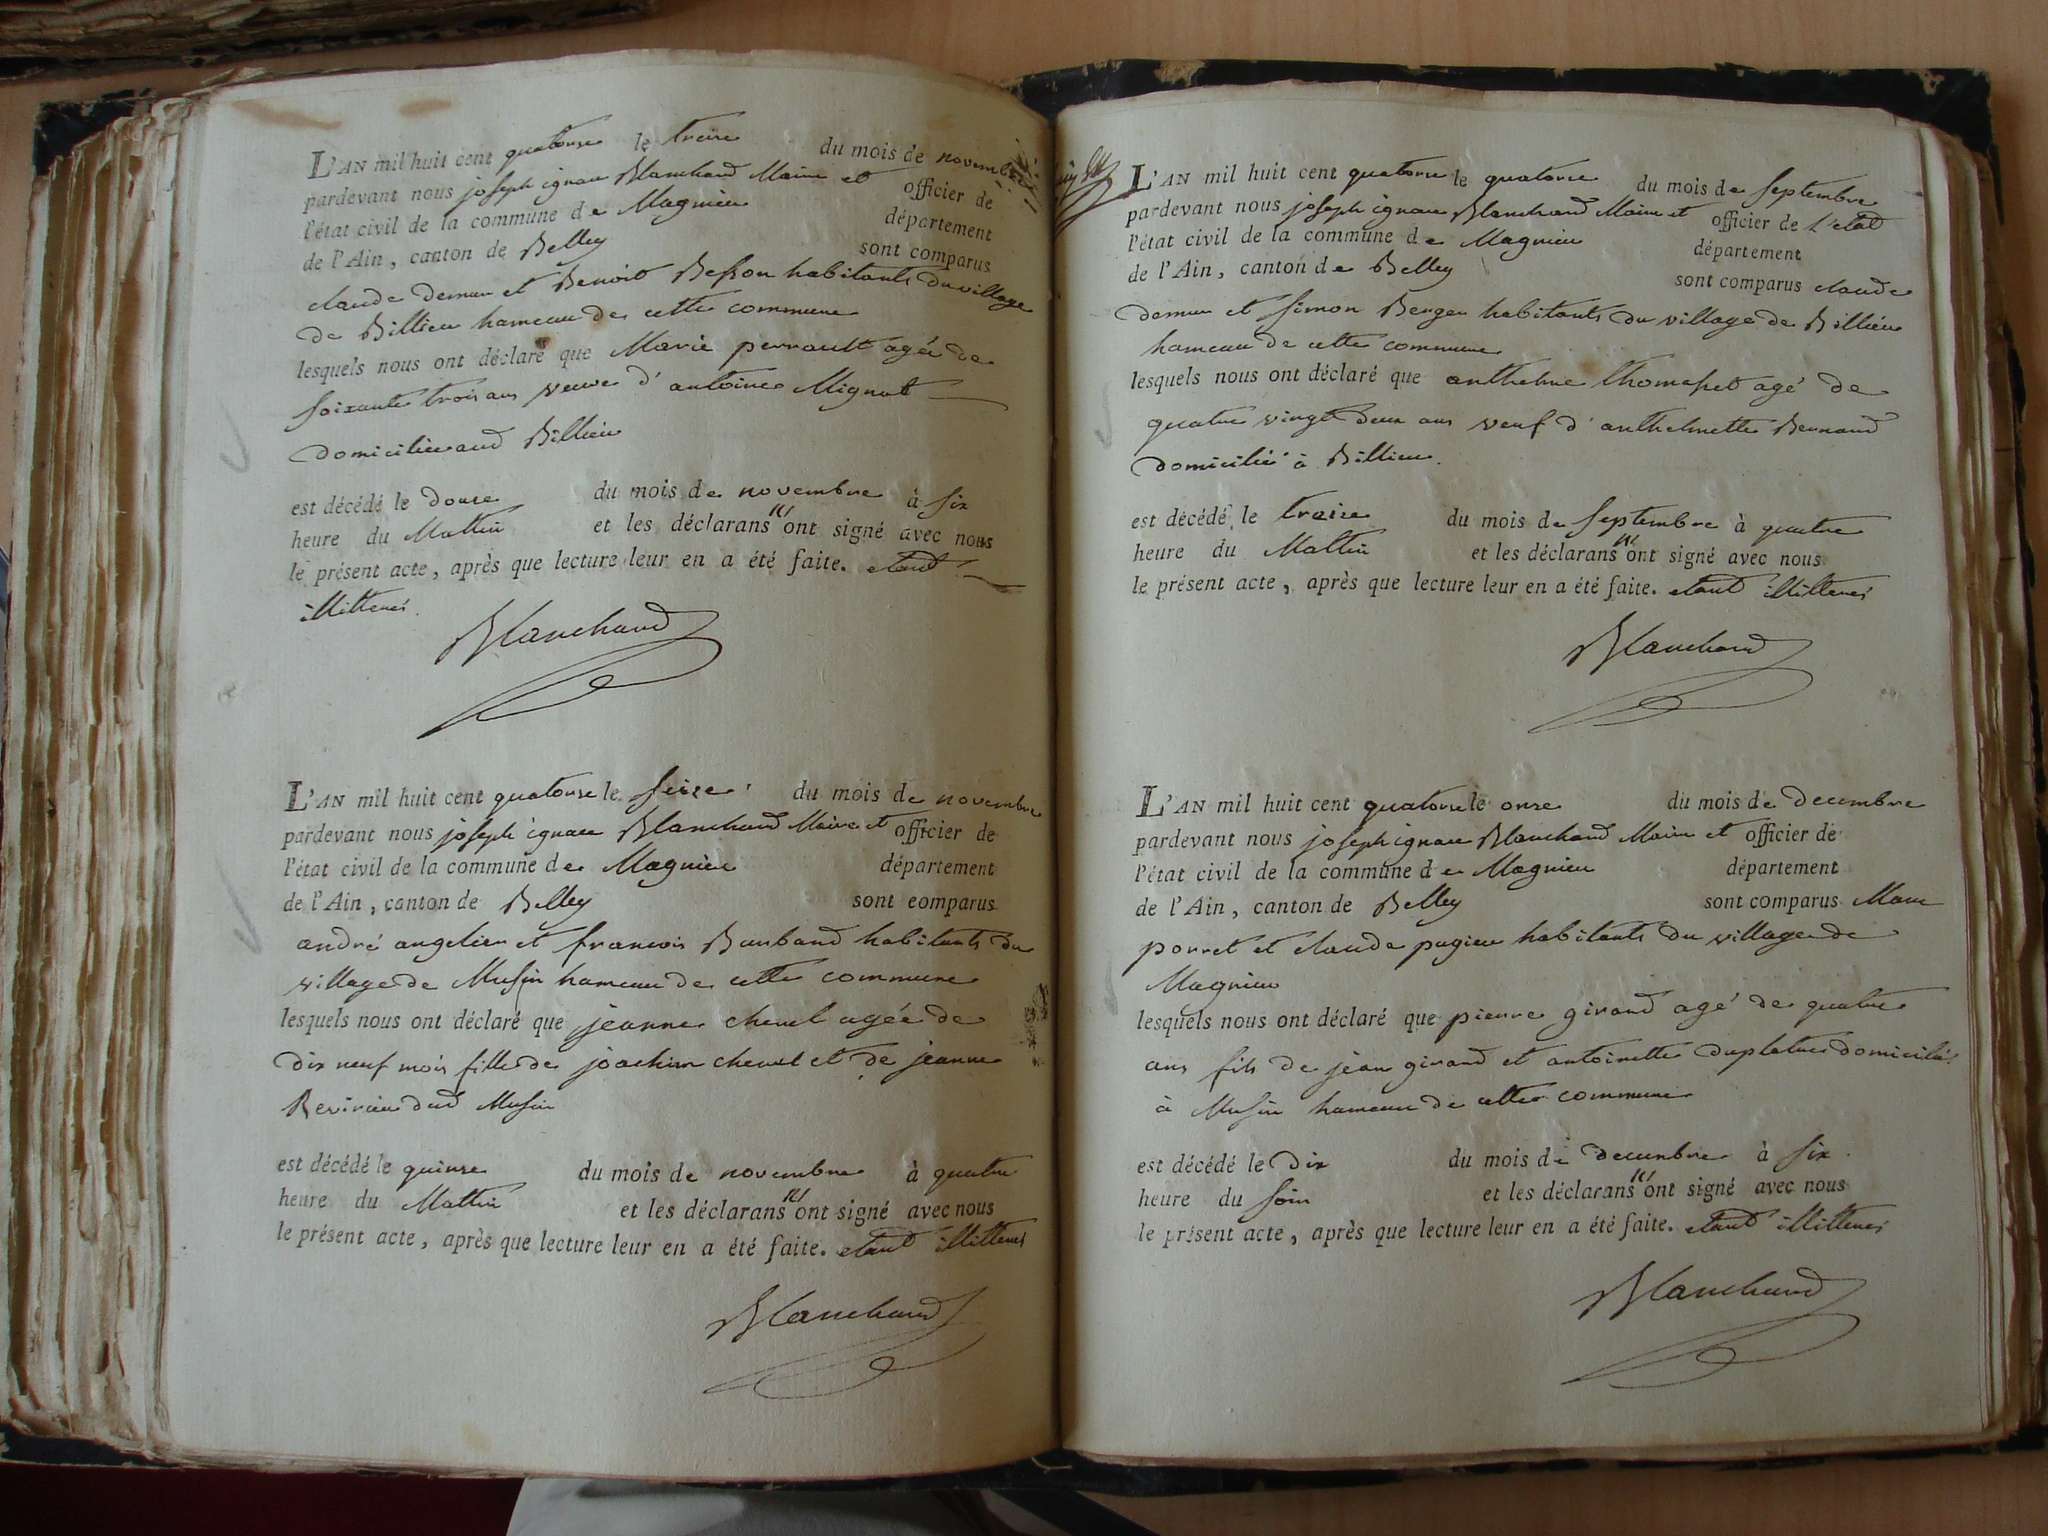 L'AN mil huit cent quatorse le treise du mois de novembre
pardevant nous joseph ignace Blanchard Maire et officier de
l'état civil de la commune de Magnieu département
de l'Ain, canton de Belley sont comparus
claude demur et Benoit Besson habitants du village
de Billieu hameau de cette commune
lesquels nous ont déclaré que Marie perrault agée de
soixante trois ans veuve d'antoine Mignot
domiciliée aud Billieu
est décédé le douse du mois de novembre à six
heure du Mattin et les déclarans n'ont signé avec nous
le présent acte, après que lecture leur en a été faite. etant
illitterés.
Blanchard
L'AN mil huit cent quatorse le seise du mois de novembre
pardevant nous joseph ignace Blanchard Maire et officier de
l'état civil de la commune de Magnieu département
de l'Ain, canton de Belley sont comparus
andré angelier et francois Burband habitants du
village de Musin hameau de cette commune
lesquels nous ont déclaré que jeanne chevel agée de
dix neuf mois fille de joachim chevel et de jeanne
Revirieu dud Musin
est décédé le quinse du mois de novembre à quatre
heure du Mattin et les déclarans n'ont signé avec nous
le présent acte, après que lecture leur en a été faite. etant illitterés
Blanchard
L'AN mil huit cent quatorse le quatorse du mois de septembre
pardevant nous joseph ignace Blanchard Maire et officier de l'etat
l'état civil de la commune de Magnieu département
de l'Ain, canton de Belley sont comparus claude
demur et simon Berger habitants du village de Billieu
hameau de cette commune
lesquels nous ont déclaré que anthelme thomasset agé de
quatre vingt deux ans veuf d'anthelmette Bernard
domicilié à Billieu.
est décédé le treise du mois de septembre à quatre
heure du Mattin et les déclarans n'ont signé avec nous
le présent acte, après que lecture leur en a été faite. etant illitterés
Blanchard
L'AN mil huit cent quatorse le onse du mois de decembre
pardevant nous joseph ignace Blanchard Maire et officier de
l'état civil de la commune de Magnieu département
de l'Ain, canton de Belley sont comparus Marc
porret et claude pugieu habitants du village de
Magnieu
lesquels nous ont déclaré que pierre girard agé de quatre
ans fils de jean girard et antoinette duplatre domicilié
à Musin hameau de cette commune
est décédé le dix du mois de decembre à six
heure du soir et les déclarans n'ont signé avec nous
le présent acte, après que lecture leur en a été faite. etant illitterés
Blanchard